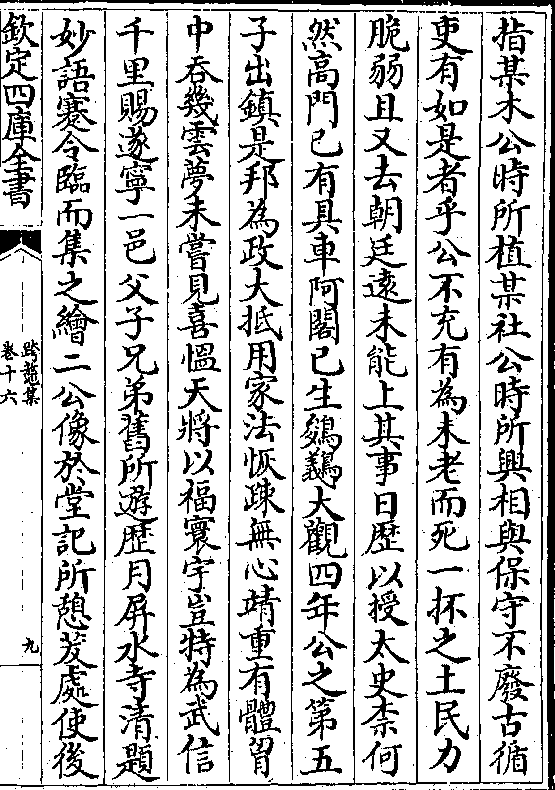 指某木公時所植某社公時所興相與保守不廢古循
吏有如是者乎公不充有為未老而死一抔之土民力
脆弱且又去朝廷遠未能上其事日歷以授太史柰何
然高門已有具車阿閣已生鵷鶵大觀四年公之第五
子出鎮是邦為政大抵用家法恢疎無心靖重有體胷
中吞幾雲夢未嘗見喜慍天將以福寰宇豈特為武信
千里賜遂寧一邑父子兄弟舊所遊歷月屏水寺清題
妙語蹇令臨而集之繪二公像於堂記所憩茇處使後
欽定四庫全書
跨鼇集
卷十六
九